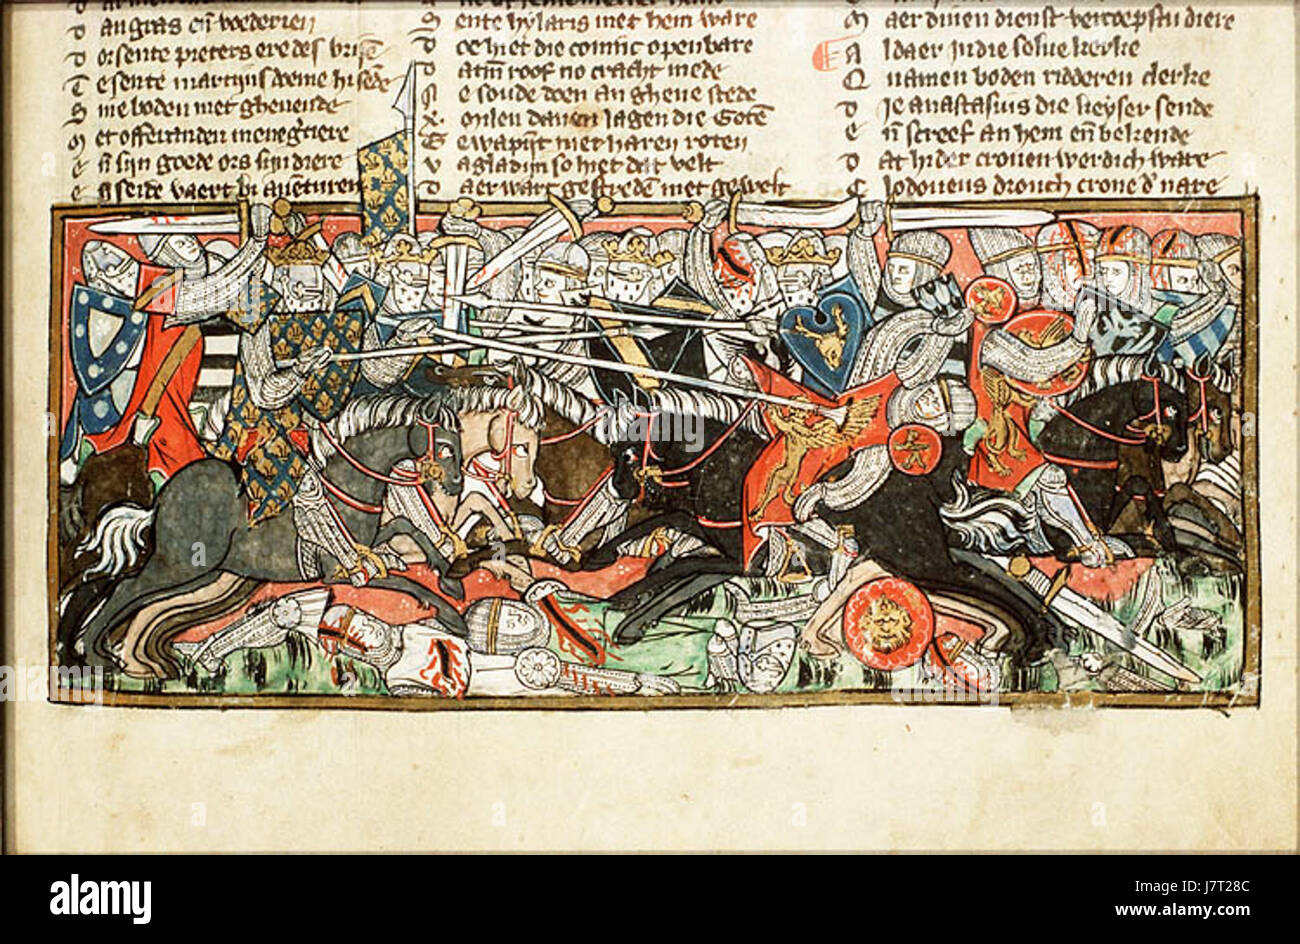 D angras en̄ voederien
D orsente pieters ere des vrisē
T e sente martijns doeme hi sēde
S ine boden met ghenende
M et offeranden menegʼtiere
E n̄ sijn goede ors sijn diere
E n̄ seide vaert bi auēturen
S ente hylaris met hem ware
D oe hiet die coninc openbare
D atm̄ roof no cracht mede
N e soude doen an ghene stede
X milen dauen lagen die Gotē
G ewapīt met haren roten
V agladijm so hiet dat velt
D aer wart gestredē met gewelt
M aer dinen dienst vercopstu diere
A ldaer in die selue kerke
Q uamen boden ridderen clerke
D ie anastasius die keyser sende
E n̄ screef an hem en̄ bekende
D at hi der cronen werdich ware
C lodoueus drouch crone dʼnare
alamy
Image ID: J7T28C
www.alamy.com